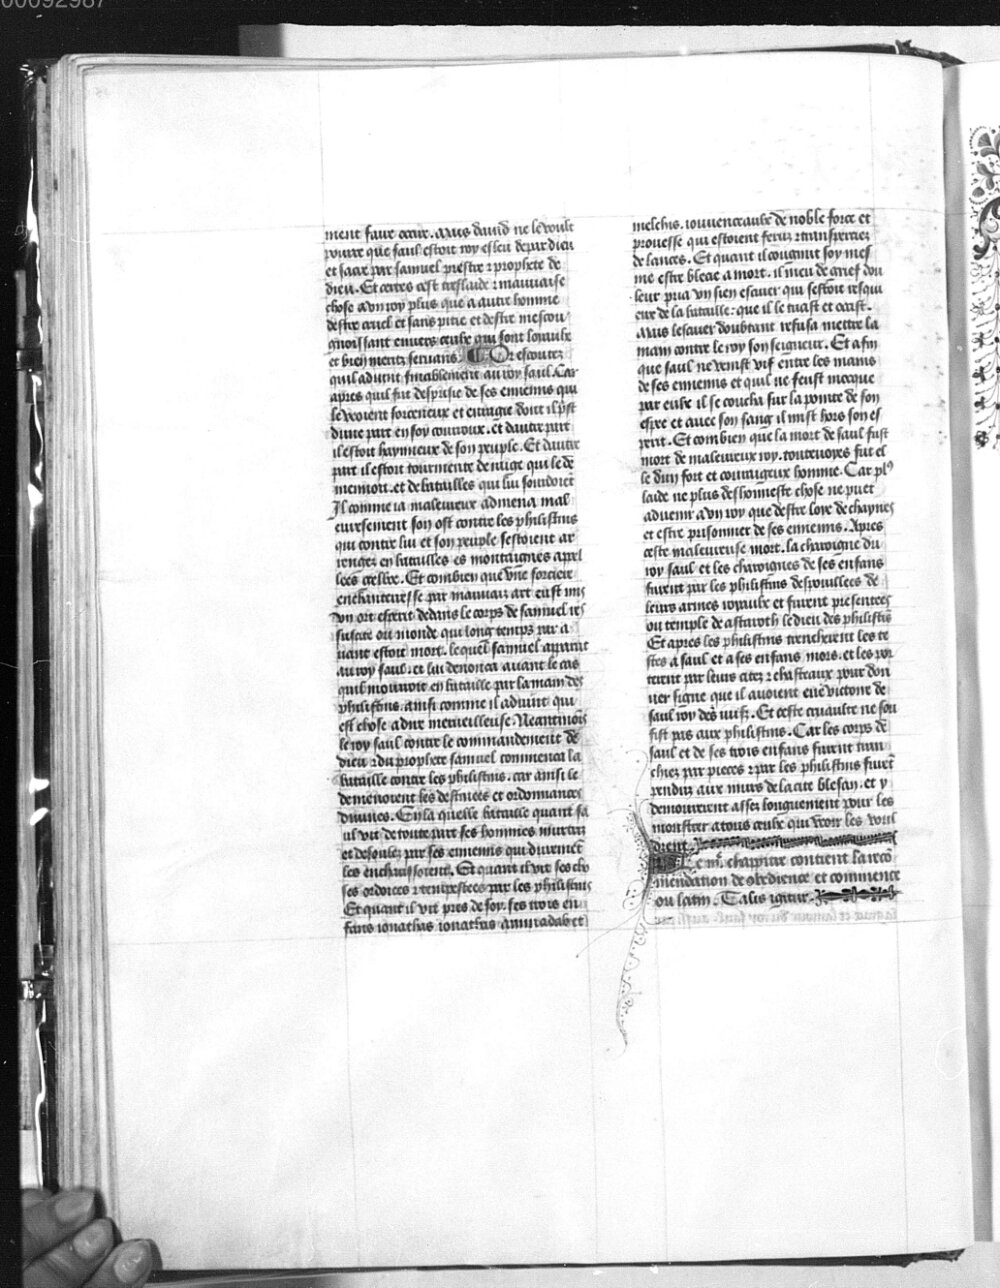 00092987
ment faire occire. Mais dauid ne le voult
pource que saul estoit roy esleu depar dieu
et sacre par samuel prestre ⁊ prophete de
dieu. Et certes cest treslaide ⁊ mauuaise
chose a vn roy plus que a autre homme
destre cruel et sans pitie et destre mescon
gnoissant enuers ceulx qui sont loyaulx
et bien meritz seruans. Or escoutez
quil aduint finablement au roy saul. Car
apres quil fut desprise de ses ennemis qui
le veoient forceneux et enragie dont il yst
dune part en soy courroux. et dautre part
il estoit hayneux de son peuple. Et dautre
part il estoit tourmente de
et de batailles qui lui sourdoiēt
Il comme ia maleureux admena mal
eureusement son ost contre les philistins
qui contre lui et son peuple sestoient ar
rengez en batailles es montaignes apel
lees gelboe. Et combien que vne sorciere
enchanteresse par mauuaiz art eust mis
vn ort esperit dedans le corps de samuel res
suscite ou monde qui long temps par a
uant estoit mort. lequel samuel apparut
au roy saul. et lui denonca auant le cas
quil mourroit en bataille par la main des
philistins. ainsi comme il aduint qui
est chose a dire merueilleuse. Neantmoīs
le roy saul contre le commandement de
dieu ⁊ du prophete samuel commenca la
bataille contre les philistins. car ainsi le
demenoient les destinees et ordonnances
diuines. En la quelle bataille quant sa
ul vit de toute part ses hommes murtriz
et defoulez par ses ennemis qui
les enchassoient. Et quant il vit ses cho
ses ordonees ⁊ tempestees par les philistins
Et quant il vit pres de soy. ses trois en
fans ionathas ionathas aminadab et
melchis. iouuenceaulx de noble force et
prouesse qui estoient feruz ⁊ transpercez
de lances. Et quant il congnut soy mes
me estre blecie a mort. il meu de grief dou
leur pria vn sien escuier qui sestoit tesqui
eue de la bataille. que il le tuast et occist.
Mais lescuier doubtant refusa mettre la
main contre le roy son seigneur. Et afin
que saul ne venist vif entre les mains
de ses ennemis et quil ne feust mocque
par eulx il se coucha sur la pointe de son
espee et auec son sang il mist hors son es
perit. Et combien que la mort de saul fust
mort de maleureux roy. toutesuoyes fut el
le dun fort et couraigeux homme. Car plꝰ
laide ne plus deshonneste chose ne puet
aduenir a vn roy que destre loye de chaynes
et estre prisonnier de ses ennemis. Apres
ceste maleureuse mort. la charoigne du
roy saul et les charoignes de ses enfans
furent par les philistins despouillees de
leurs armes royaulx et furent presentees
ou temple de astaroth le dieu des philistīs
Et apres les philistins trencherent les te
stes a saul et a ses enfans mors. et les por
terent par leurs citez ⁊ chasteaux pour don
ner signe que il auoient eue victoire de
saul roy des iuifz. Et ceste cruaulte ne sou
fist pas aux philistins. Car les corps de
saul et de ses trois enfans furent tran
chiez par pieces ⁊ par les philistins furēt
penduz aux murs de la cite blesan. et y
demourerent assez longuement pour les
monstrer a tous ceulx qui veoir les voul
drent.
Le m̄. chappitre contient la reco
mendation de obedience et commence
ou latin. Talis igitur.